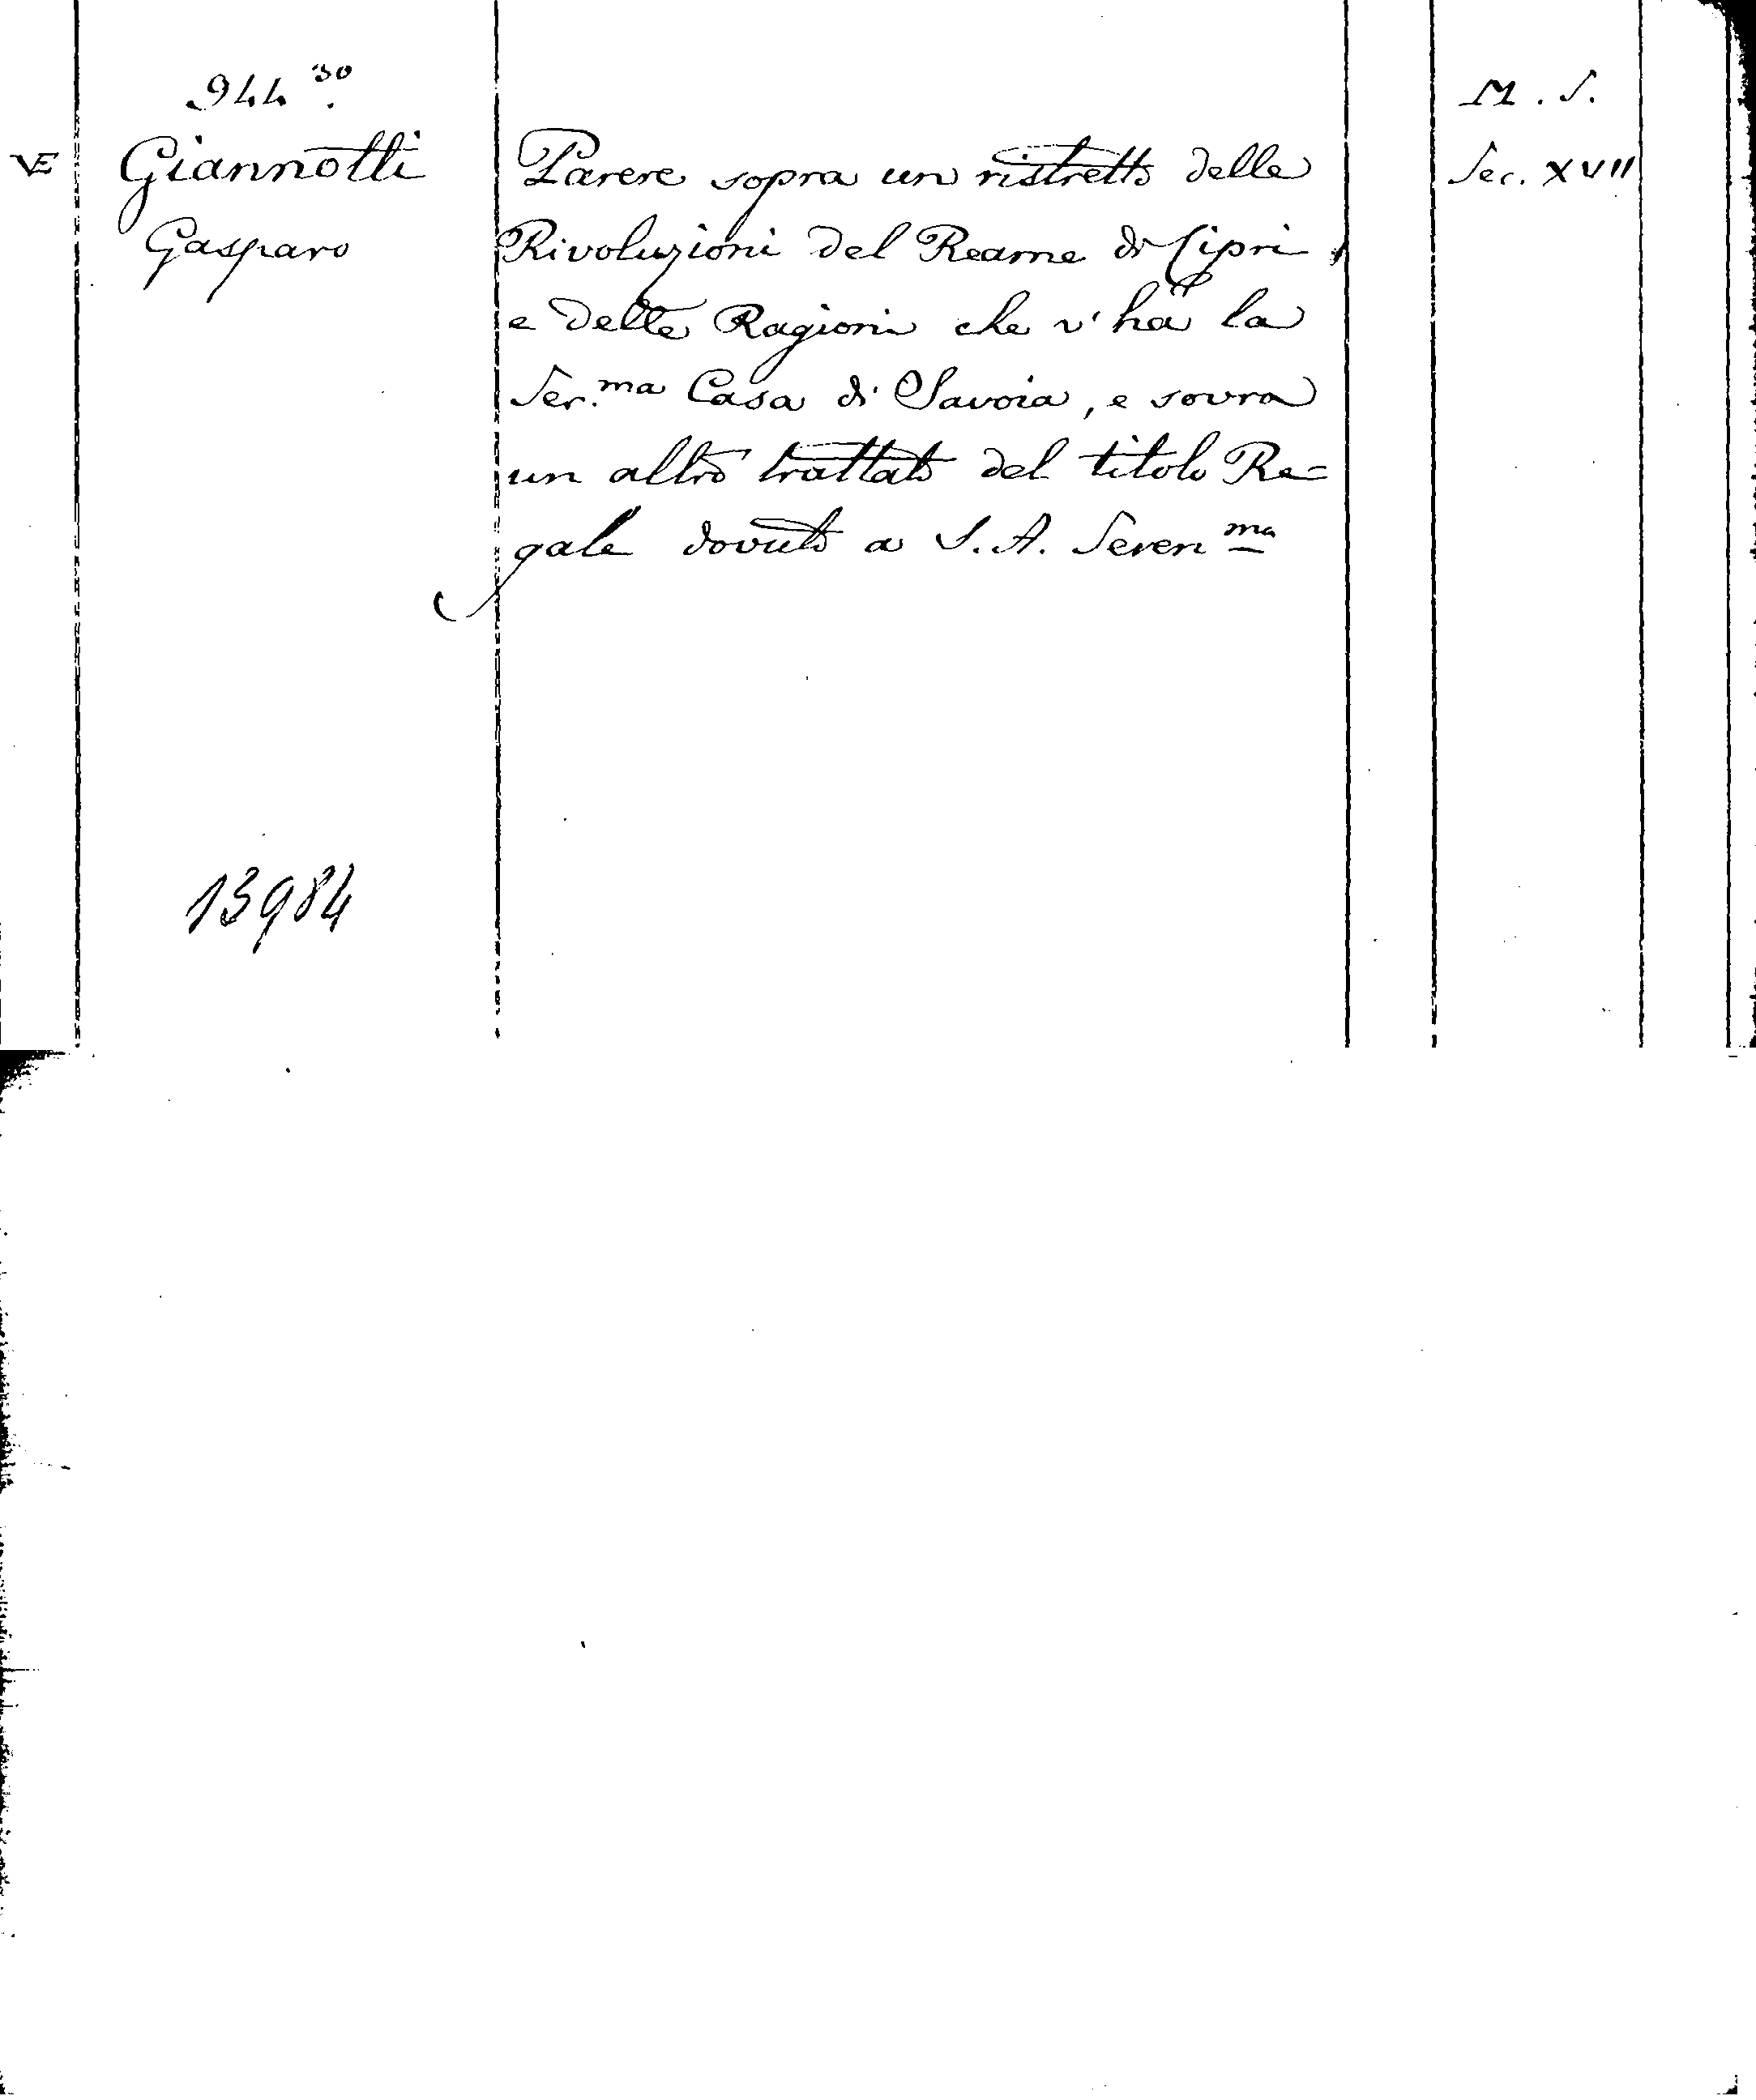 944 30.
VE
Giannotti
Gasparo
Parere sopra un ristretto delle
Rivoluzioni del Reame di Cipri,
e delle Ragioni che v'ha la
Ser.ma Casa di Savoia, e sovra
un altro trattato del titolo Re=
gale dovuto a S. A. Seren ma
M. S.
Sec. XVII
13984